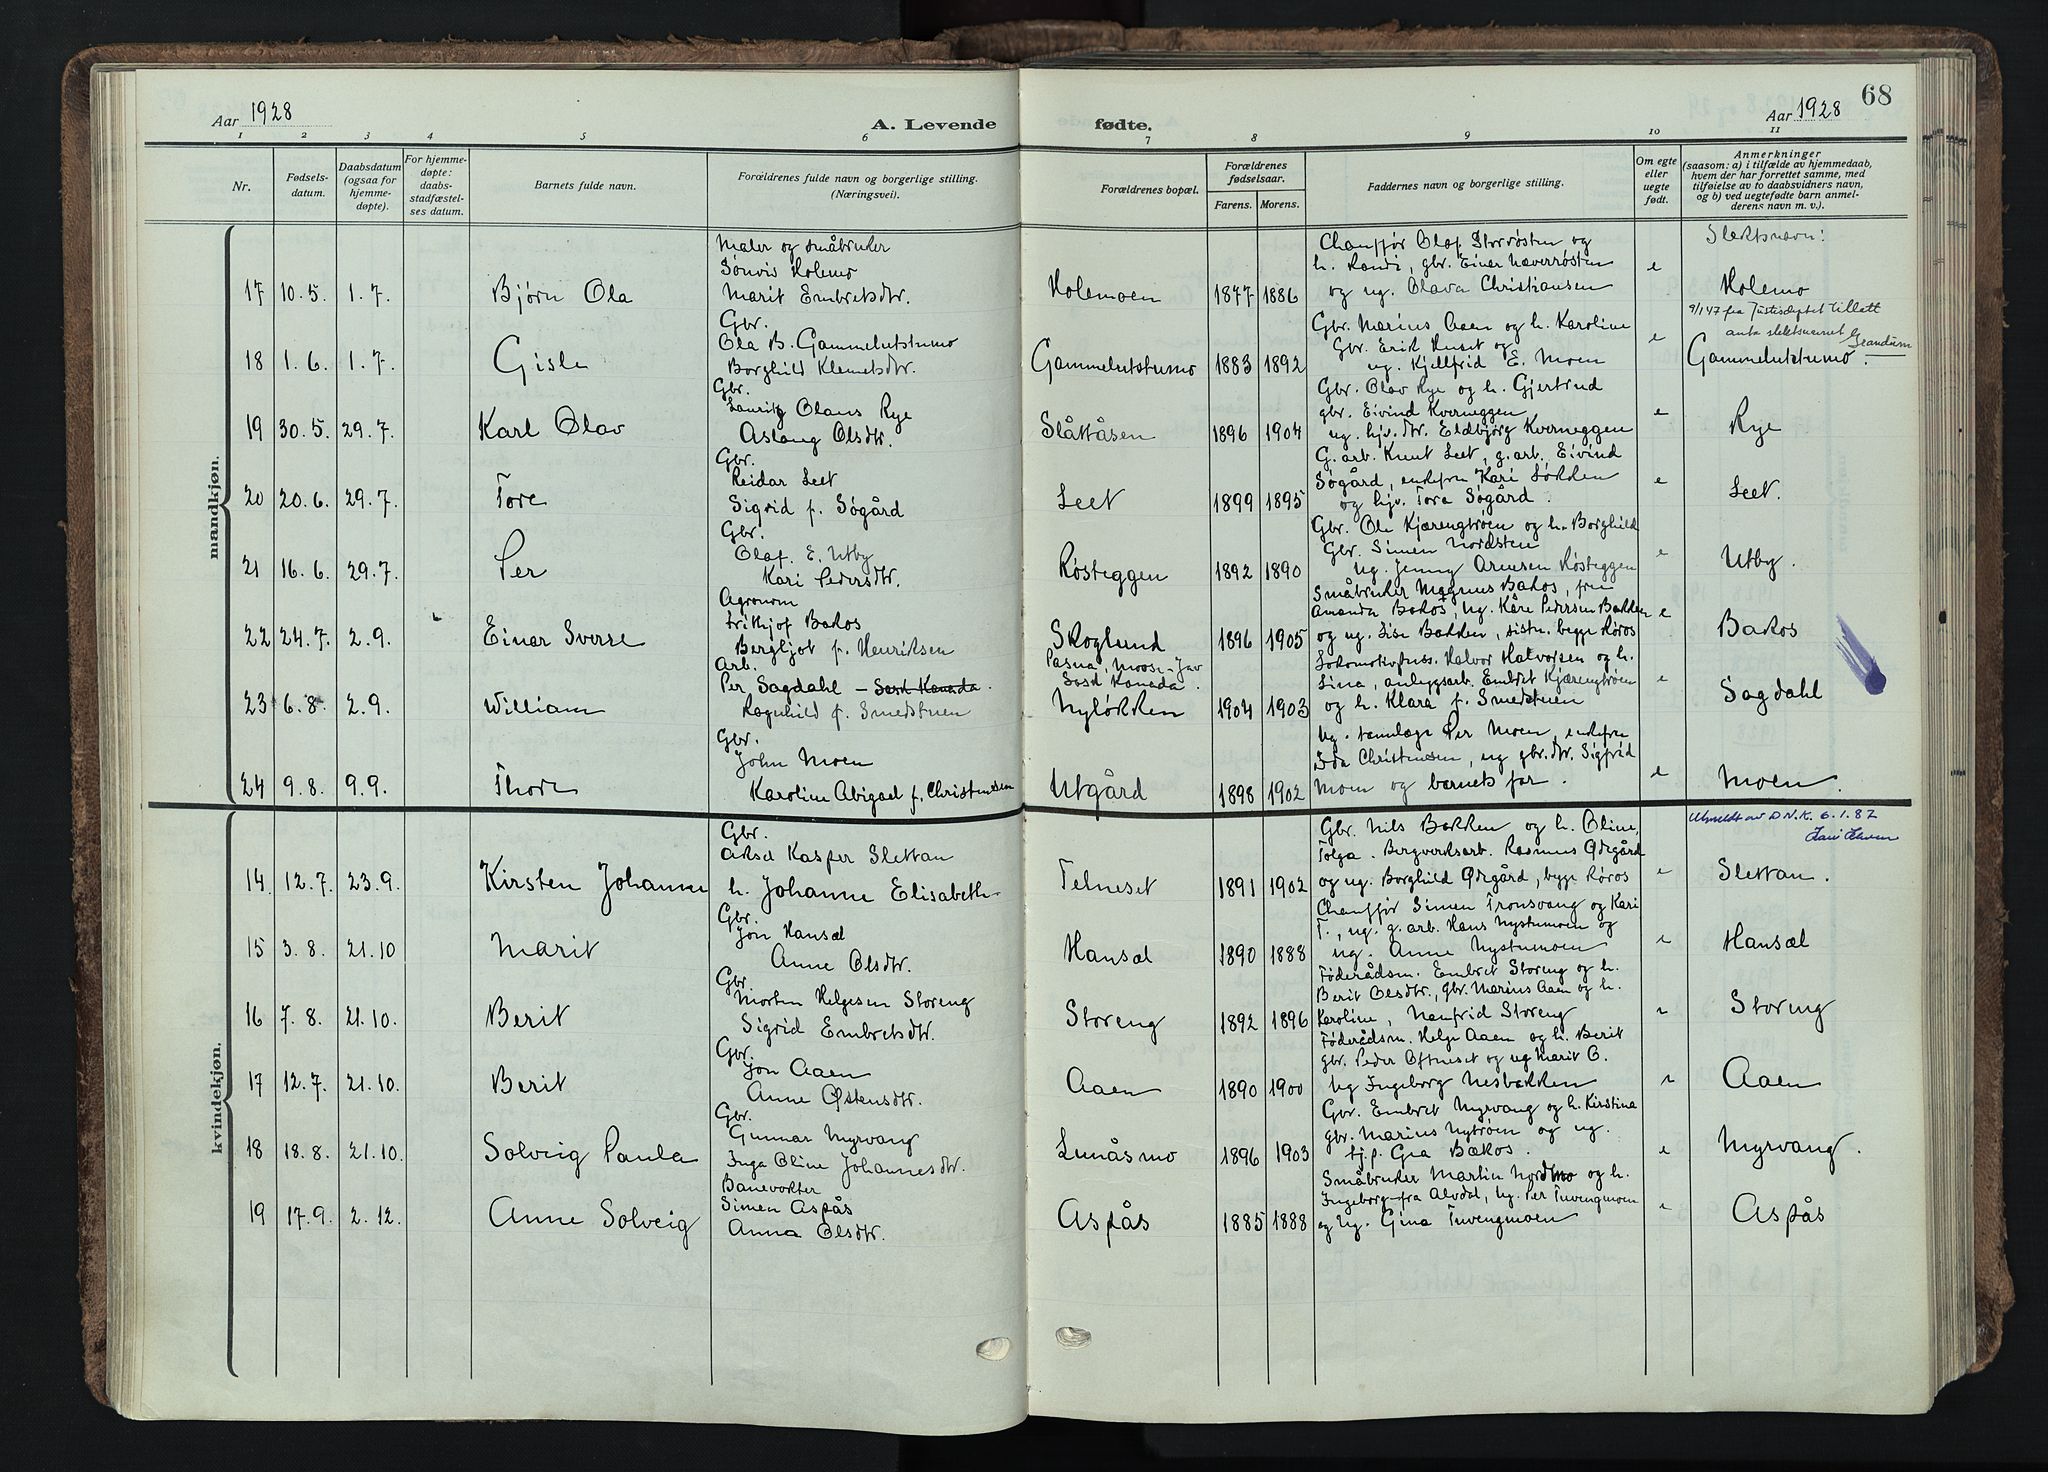 68
Aar 1928
A. Levende fødte.
Aar 1928
1 2 3 4 5 6 7 8 9 10 11
Nr.
Fødsels-
datum.
Daabsdatum
(ogsaa for
hjemme-
døpte).
For hjemme-
døpte:
daabs-
stadfæstel-
ses datum.
Barnets fulde navn.
Forældrenes fulde navn og borgerlige stilling.
(Næringsvei).
Forældrenes bopæl.
Forældrenes
fødselsaar.
Farens. Morens.
Faddernes navn og borgerlige stilling.
Om egte
eller
uegte
født.
Anmerkninger
(saasom: a) i tilfælde av hjemmedaab,
hvem der har forrettet samme, med
tilføielse av to daabsvidners navn,
og b) ved uegtefødte barn anmel-
derens navn m. v.).
Slektsnavn:
mandkjøn.
Maler og småbruker
Sønvis Holemo
17 10.5. 1.7. Bjørn Ola Marit Embretsdtr. Holemoen 1877 1886
Chauffør Olaf Storrøsten og
h. Randi, gbr. Einar Næverrøsten
og ug. Olava Christiansen
e Holemo
Gbr.
Ola B. Gammelutstumo
18 1.6. 1.7. Gisle Borghild Klemetsdtr. Gammelutstumo 1883 1892
Gbr. Marius Aaen og h. Karoline
Gbr. Erik Huset og
ug. Kjellfrid E. Moen
e
9/1 47 fra Justisdeptet tillatt
anta slektsnavnet Grandum
Gammelutstumo.
Gbr.
Lauritz Olaus Rye
19 30.5. 29.7. Karl Olav Aslaug Olsdtr. Slåttåsen 1896 1904
Gbr. Olav Rye og h. Gjertrud
gbr. Eivind Kverneggen
ug. hjv. dtr. Eldbjørg Kverneggen
e Rye
Gbr.
Reidar Leet
20 20.6. 29.7. Tore Sigrid f. Søgård Leet 1899 1895
G. arb. Knut Leet, g. arb. Eivind
Søgård, enkefru Kari Løkken
og hjv. Tora Søgård.
e Leet.
Gbr.
Olaf E. Utby
21 16.6. 29.7. Per Kari Pedersdtr. Røsteggen 1892 1890
Gbr. Ole Kjærengtrøen og h. Borghild
Gbr. Simen Nordsten
Ug. Jenny Arnesen Røsteggen
e Utby.
Agronom
Frithjof Bakos
22 24.7. 2.9. Einar Sverre Bergljot f. Henriksen Skoglund 1896 1905
Småbruker Magnus Bakos, fru
Amanda Bakos, Ug. Kåre Pedersen Bakken
og ug. Lise Bakken, sistn. begge Røros
e Bakos
Arb.
Per Sagdahl – Sask Kanada.
23 6.8. 2.9. William Ragnhild f. Smedstuen
Pasna, Moose-Jav
Sask Kanada.
Nyløkken 1904 1903
Lokomotivfuss. Halvor Halvorsen og h.
Lina, anleggsarb. Embret Kjærengtrøen
og h. Klara f. Smedstuen
e Sagdahl
Gbr.
John Moen
24 9.8. 9.9. Thore Karoline Abigael f. Christensen Utgård 1898 1902
Ug. tannlæge Per Moen, enkefru
Ida Christensen, ug gbr. dtr. Sigfrid
Moen og barnets far.
e Moen.
kvindekjøn.
Gbr.
Aksel Kasper Slettan
14 12.7. 23.9. Kirsten Johanne h. Johanne Elisabeth Telneset 1891 1902
Gbr. Nils Bakken og h. Oline,
Tolga. Bergverksarb. Rasmus Ødegård
og ug. Borghild Ødegård, begge Røros
e
Utmeldt av D.N.K. 6.1.82
Slettan.
Gbr.
Jon Hansæl
15 3.8. 21.10 Marit Anne Olsdtr. Hansæl 1890 1888
Chauffør Simen Tronsvang og Kari
T., ug. g. arb. Hans Nystumoen og
ug. Anne Nystumoen
e Hansæl
Gbr.
Morten Helgesen Storeng
16 7.8. 21.10. Berit Sigrid Embretsdtr. Storeng 1892 1896
Føderådsm. Embret Storeng og h.
Berit Olsdtr., gbr. Marius Aaen og h.
Karoline, Namfrid Storeng
e Storeng
Gbr.
Jon Aaen
17 12.7. 21.10. Berit Anne Østensdtr. Aaen 1890 1900
Føderådsm. Helge Aaen og h. Berit
gbr. Peder Oftneset og ug Marit O.
Ug Ingeborg Nesbakken
e Aaen
Gbr.
Gunnar Myrvang
18 18.8. 21.10. Solveig Paula Inga Oline Johannesdtr. Lunåsmo 1896 1903
Gbr. Embret Myrvang og h. Kirstina
gbr. Marius Nytrøen og ug.
tj.p. Gea Bækos.
e Myrvang.
Banevokter
Simen Aspås
19 17.9. 2.12. Anne Solveig Anna Olsdtr. Aspås 1885 1888
Småbruker Martin Nordmo og h.
Ingeborg fra Alvdal, Ug. Per Tuvengmoen
og Ug. Gina Tuvengmoen
e Aspås